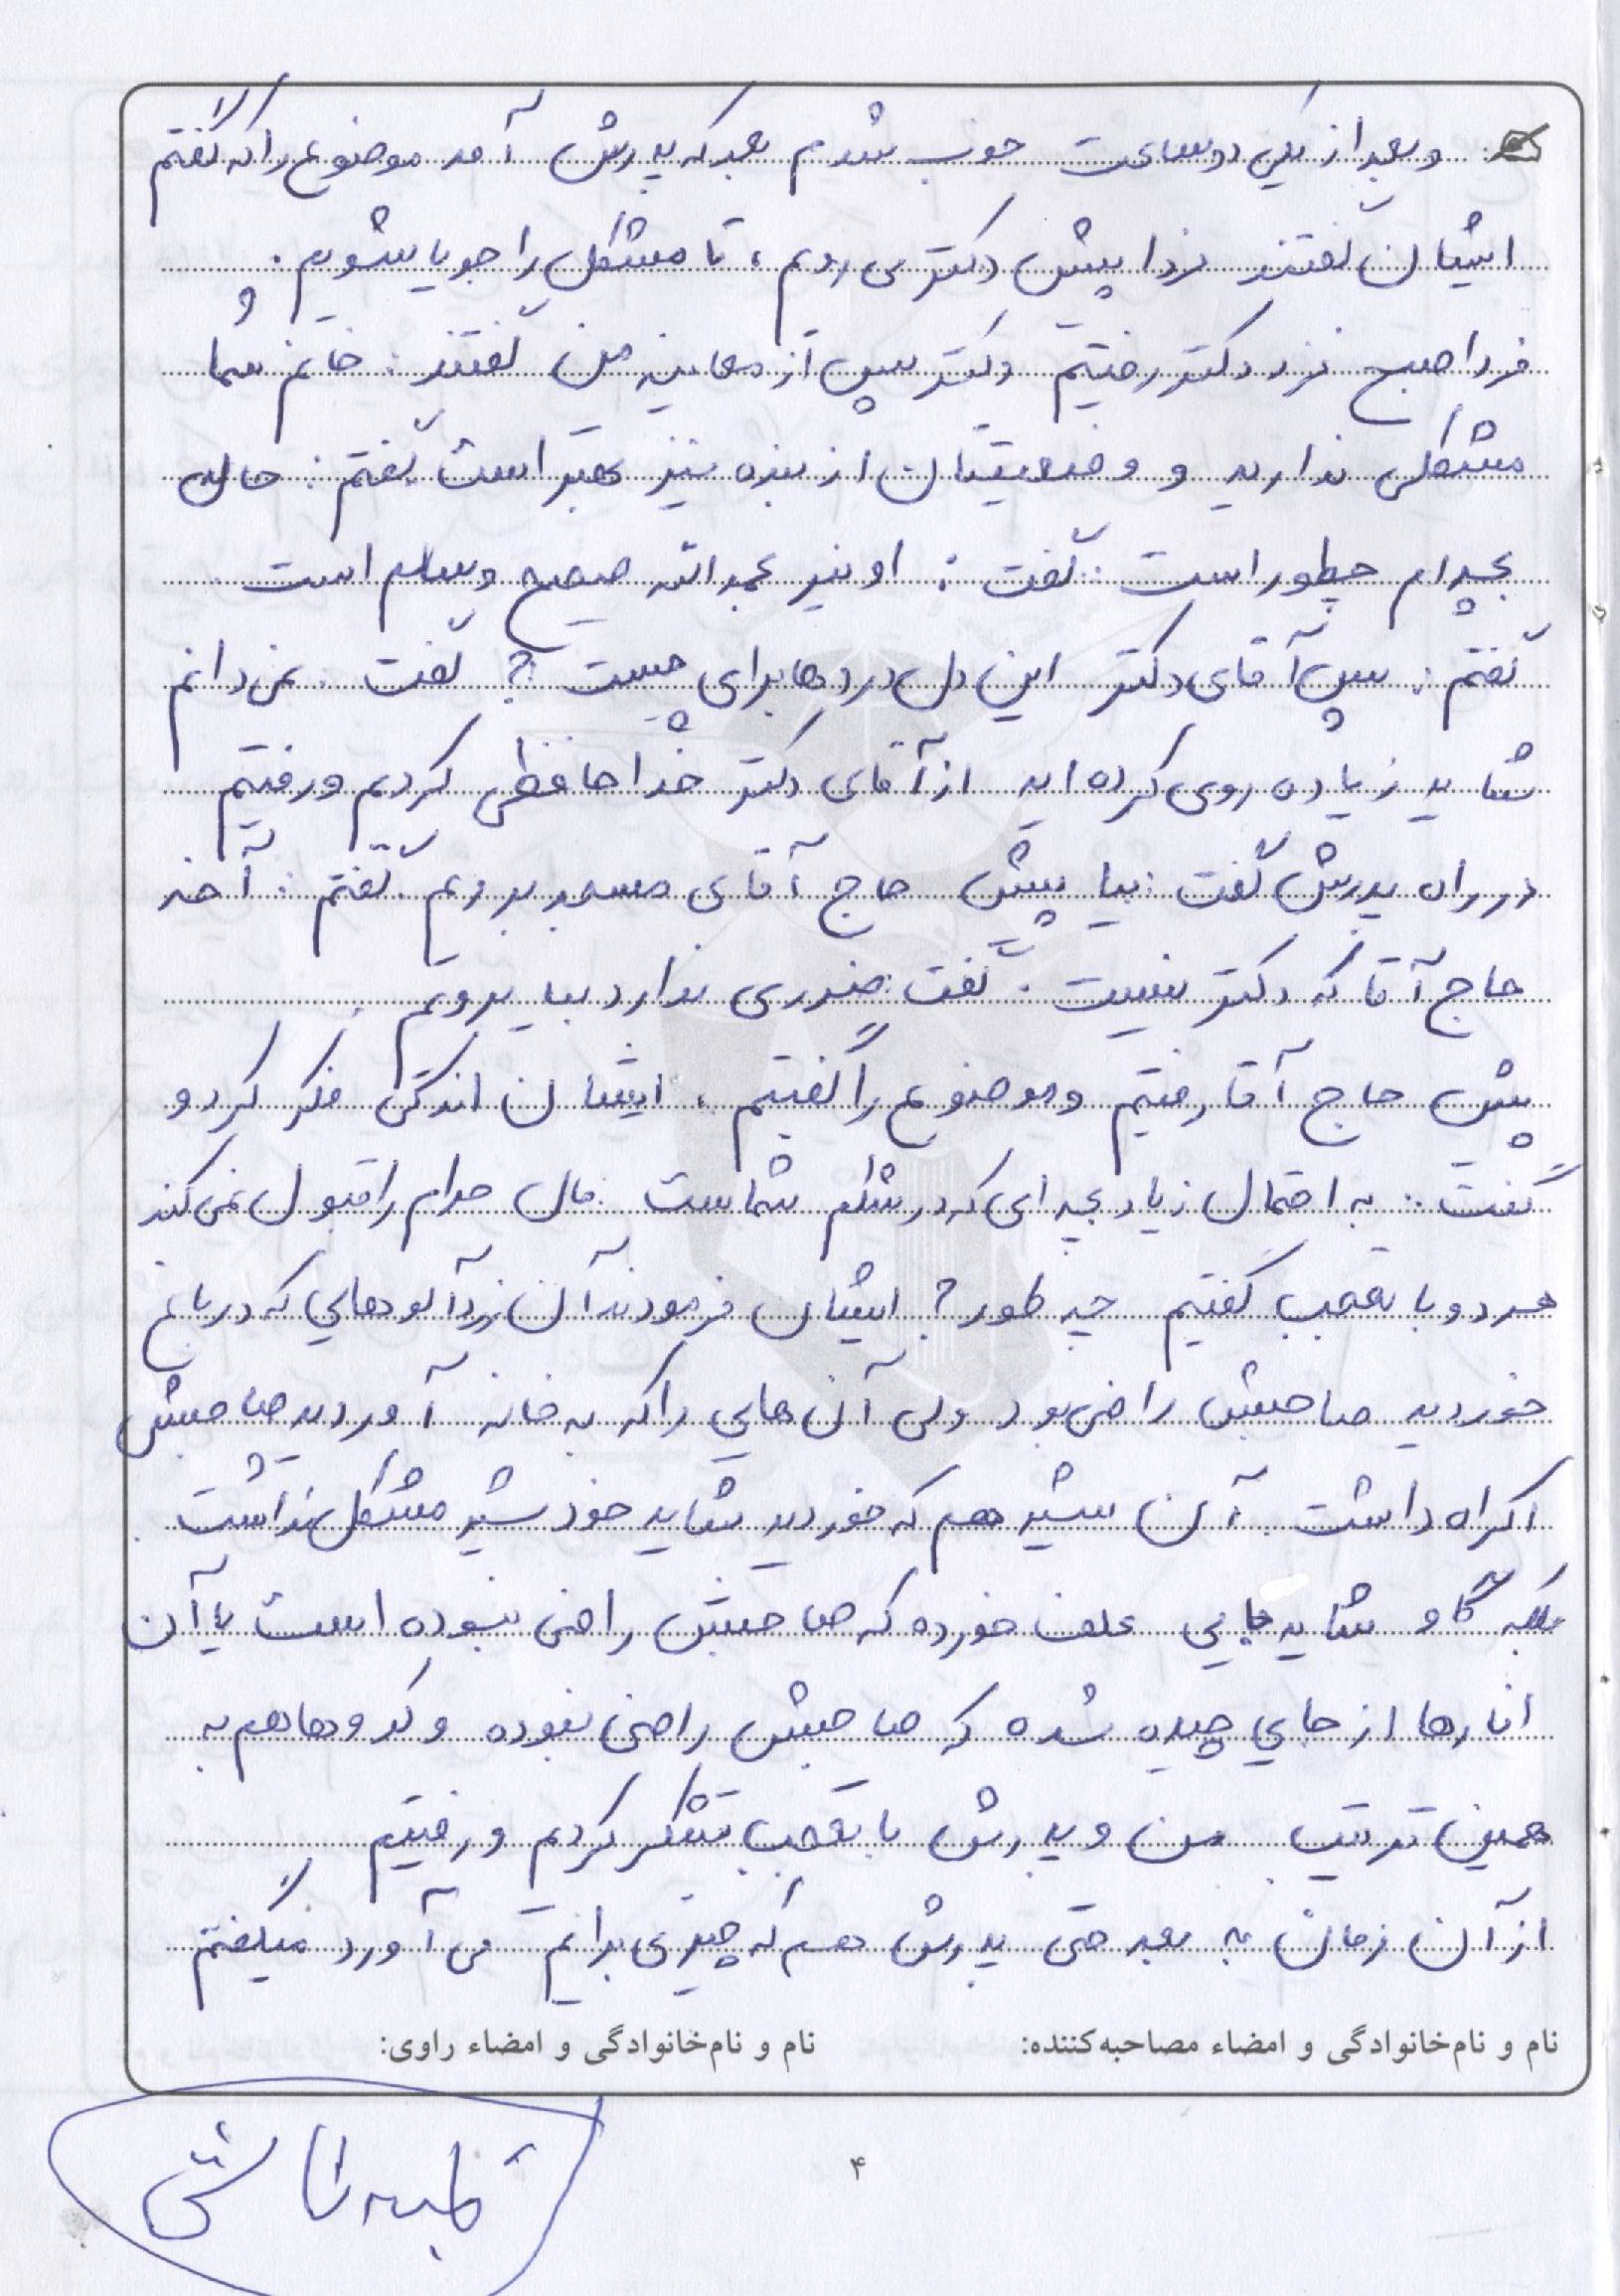 و بعد از یکی دو ساعت خوب شدم بعد که پدرش آمد موضوع را که گفتم
ایشان گفتند فردا پیش دکتر می رویم، تا مشکل را جویا شویم.
فردا صبح نزد دکتر رفتیم دکتر پس از معاینه من گفتند: خانم شما
مشکلی ندارید و وضعیتتان از بنده نیز بهتر است گفتم: حال
بچه ام چطور است. گفت: او نیز بحمدالله صحیح و سالم است
گفتم: پس آقای دکتر این دل دردها برای چیست؟ گفت. نمی دانم
شاید زیاده روی کرده اید از آقای دکتر خداحافظی کردیم و رفتیم
در راه پدرش گفت: بیا پیش حاج آقای مسجد برویم. گفتم: آخر
حاج آقا که دکتر نیست. گفت: ضرری ندارد بیا برویم.
پیش حاج آقا رفتیم و موضوع را گفتیم، ایشان اندکی فکر کرد و
گفت: به احتمال زیاد بچه ای که در شکم شماست مال حرام را قبول نمی کند
هر دو با تعجب گفتیم چه طور؟ ایشان فرمودند آن زردآلوهایی که در باغ
خوردید صاحبش راضی بود ولی آن هایی را که به خانه آوردید صاحبش
اکراه داشت. آن شیر هم که خوردید شاید خود شیر مشکل نداشت.
بلکه گاو شاید جایی علف خورده که صاحبش راضی نبوده است یا آن
انارها از جایی چیده شده که صاحبش راضی نبوده و کدوها هم به
همین ترتیب من و پدرش با تعجب تشکر کردیم و رفتیم
از آن زمان به بعد حتی پدرش هم که چیزی برایم می آورد میگفتم
نام و نام‌خانوادگی و امضاء مصاحبه‌کننده: نام و نام‌خانوادگی و امضاء راوی:
۴